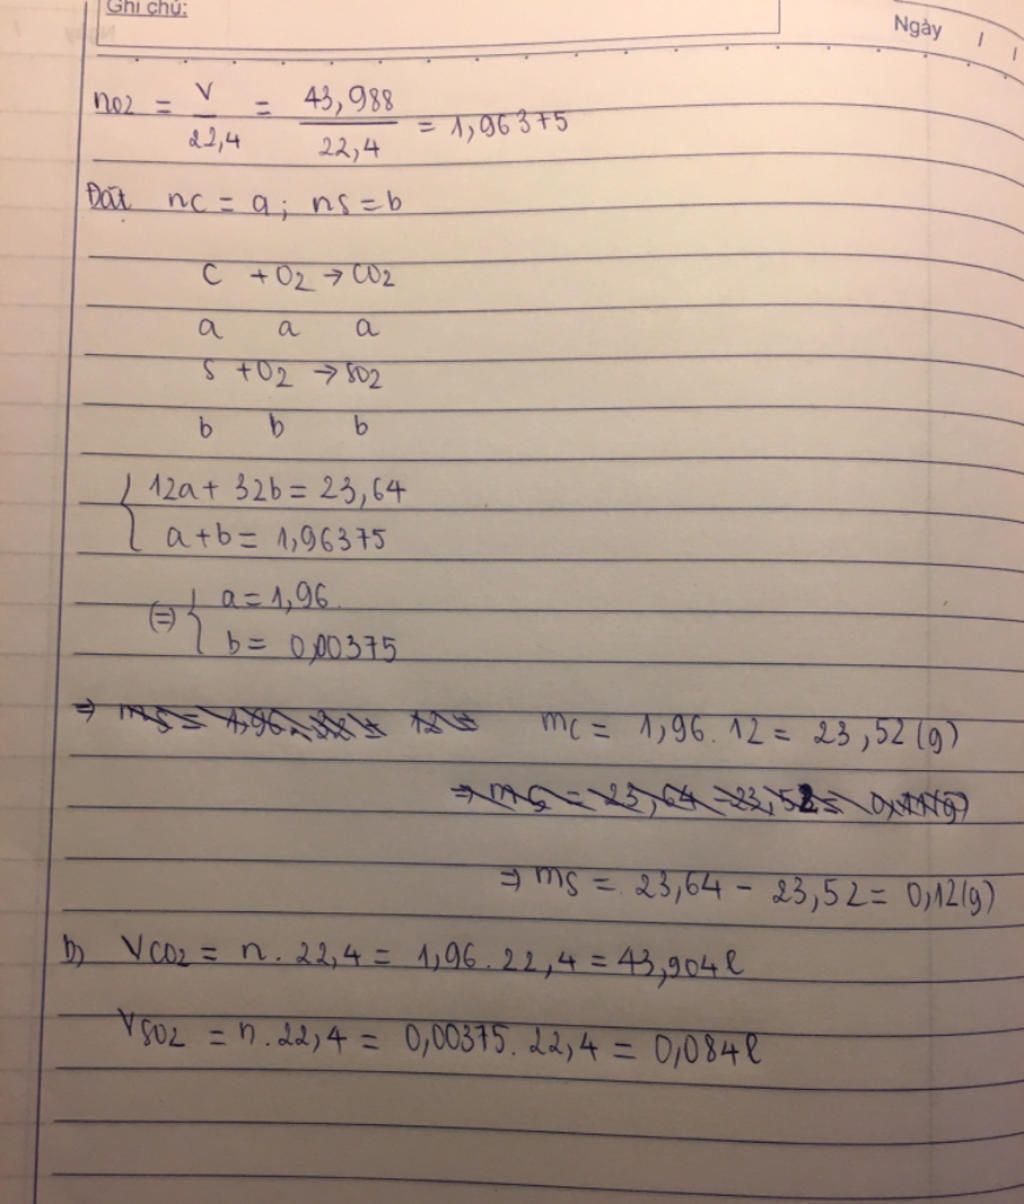 Ghi chú:
Ngày / /
nO2 = V/22,4 = 43,988/22,4 = 1,96375
Đặt nC = a; nS = b
C + O2 → CO2
a a a
S + O2 → SO2
b b b
{ 12a + 32b = 23,64
a + b = 1,96375
(=) { a = 1,96
b = 0,00375
⇒ mC = 1,96 . 12 = 23,52 (g)
⇒ mS = 23,64 - 23,52 = 0,12 (g)
b) VCO2 = n . 22,4 = 1,96 . 22,4 = 43,904 l
VSO2 = n . 22,4 = 0,00375 . 22,4 = 0,084 l